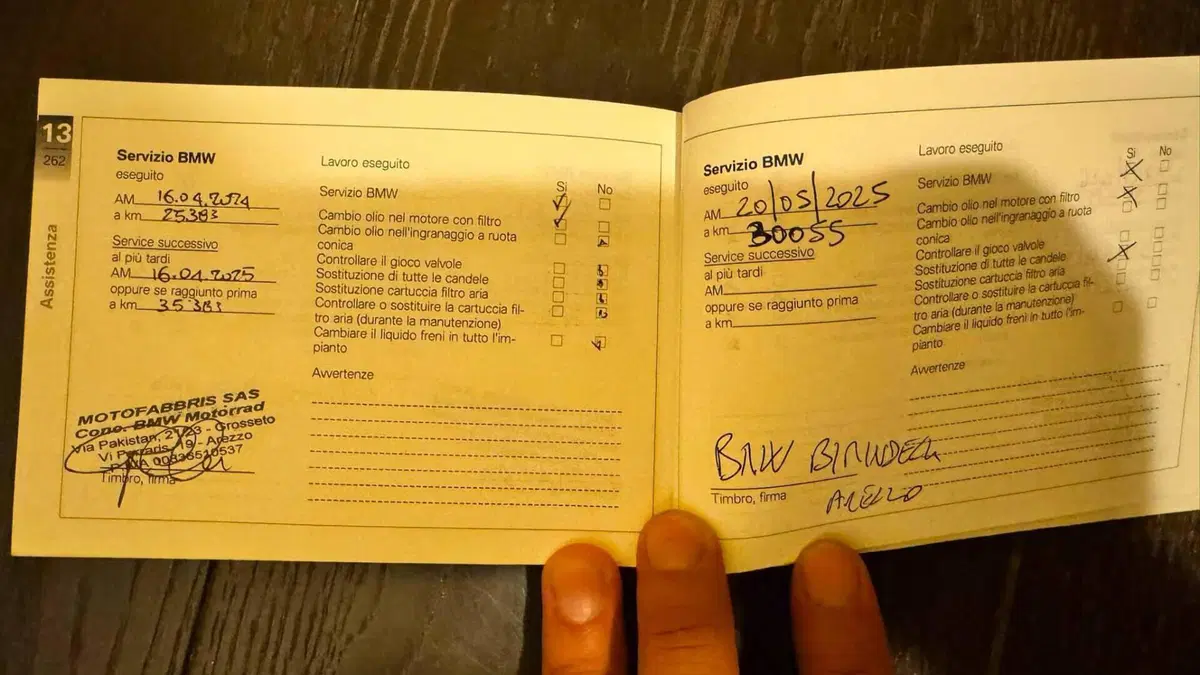 13
262
Assistenza
Servizio BMW
eseguito
AM 16.04.2024
a km 25.383
Service successivo
al più tardi
AM 16.04.2025
oppure se raggiunto prima
a km 35.383
MOTOFABBRIS SAS
Conc. BMW Motorrad
Via Pakistan, - Grosseto
19 - Arezzo
Timbro, firma
Lavoro eseguito
Si No
Servizio BMW
Cambio olio nel motore con filtro
Cambio olio nell'ingranaggio a ruota
conica
Controllare il gioco valvole
Sostituzione di tutte le candele
Sostituzione cartuccia filtro aria
Controllare o sostituire la cartuccia fil-
tro aria (durante la manutenzione)
Cambiare il liquido freni in tutto l'im-
pianto
Avvertenze
Servizio BMW
eseguito
AM 20/05/2025
a km 30055
Service successivo
al più tardi
AM
oppure se raggiunto prima
a km
BMW
Timbro, firma
Lavoro eseguito
Si No
Servizio BMW
Cambio olio nel motore con filtro
Cambio olio nell'ingranaggio a ruota
conica
Controllare il gioco valvole
Sostituzione di tutte le candele
Sostituzione cartuccia filtro aria
Controllare o sostituire la cartuccia fil-
tro aria (durante la manutenzione)
Cambiare il liquido freni in tutto l'im-
pianto
Avvertenze